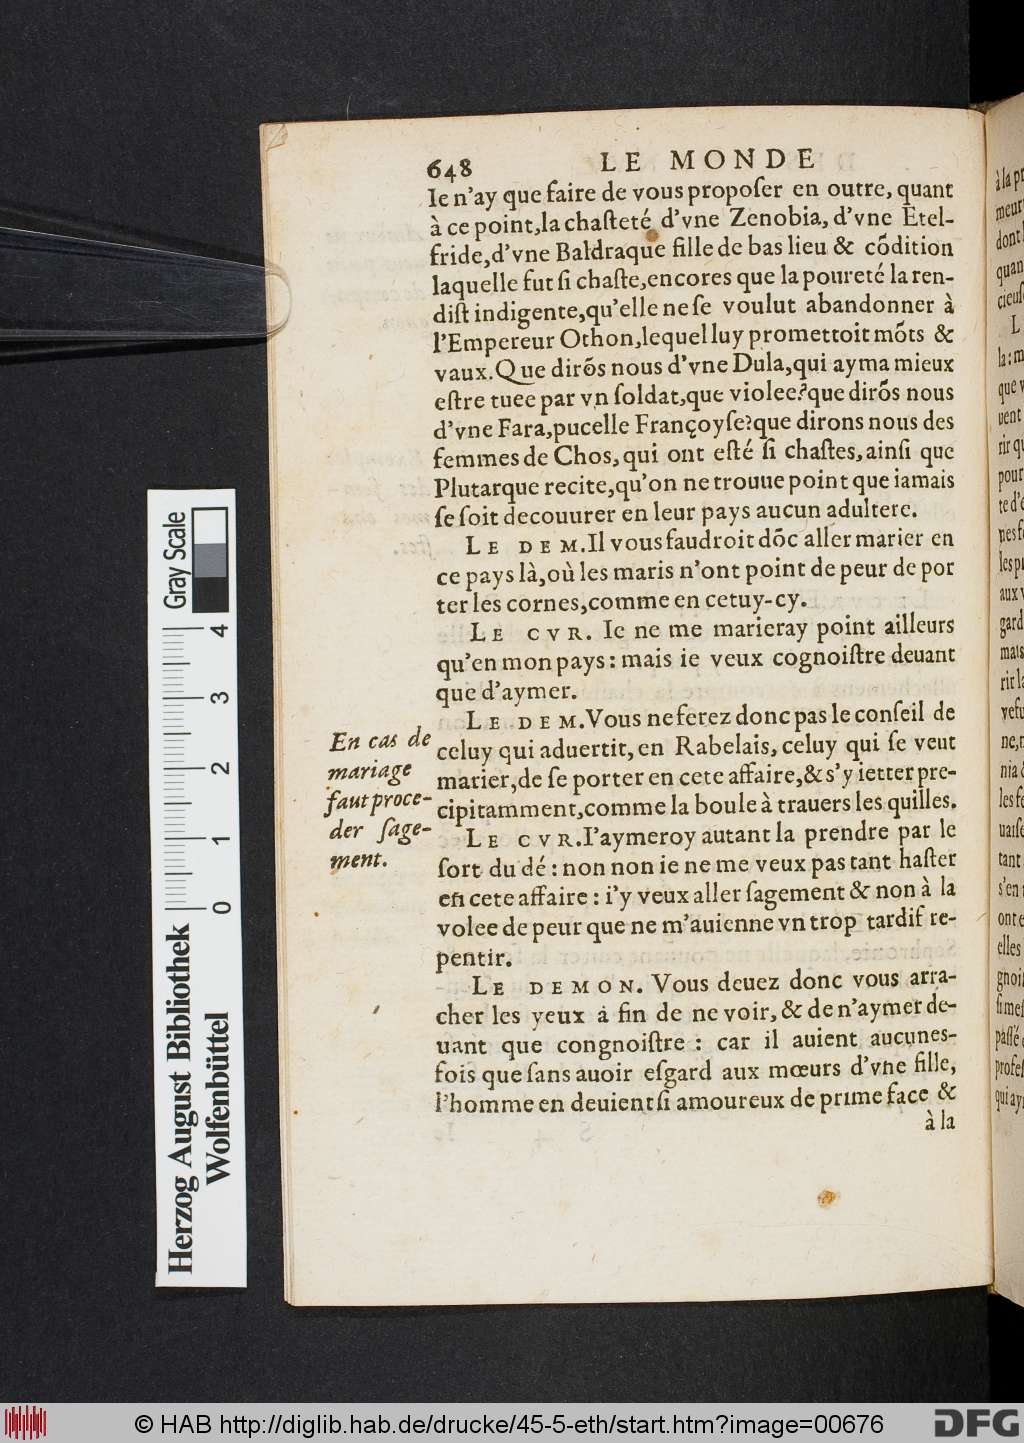 648 LE MONDE
Ie n'ay que faire de vous proposer en outre, quant
à ce point, la chaſteté d'vne Zenobia, d'vne Etel-
fride, d'vne Baldraque fille de bas lieu & cõdition
laquelle fut ſi chaſte, encores que la poureté la ren-
diſt indigente, qu'elle ne ſe voulut abandonner à
l'Empereur Othon, lequel luy promettoit mõts &
vaux. Que dirõs nous d'vne Dula, qui ayma mieux
eſtre tuee par vn ſoldat, que violee? que dirõs nous
d'vne Fara, pucelle Françoyſe? que dirons nous des
femmes de Chos, qui ont eſté ſi chaſtes, ainſi que
Plutarque recite, qu'on ne trouue point que iamais
ſe ſoit decouurer en leur pays aucun adultere.
LE DEM. Il vous faudroit dõc aller marier en
ce pays là, où les maris n'ont point de peur de por
ter les cornes, comme en cetuy-cy.
LE CVR. Ie ne me marieray point ailleurs
qu'en mon pays : mais ie veux cognoiſtre deuant
que d'aymer.
LE DEM. Vous ne ferez donc pas le conſeil de
celuy qui aduertit, en Rabelais, celuy qui ſe veut
marier, de ſe porter en cete affaire, & s'y ietter pre-
cipitamment, comme la boule à trauers les quilles.
En cas de
mariage
faut proce-
der ſage-
ment.
LE CVR. I'aymeroy autant la prendre par le
ſort du dé : non non ie ne me veux pas tant haſter
en cete affaire : i'y veux aller ſagement & non à la
volee de peur que ne m'auienne vn trop tardif re-
pentir.
LE DEMON. Vous deuez donc vous arra-
cher les yeux à fin de ne voir, & de n'aymer de-
uant que congnoiſtre : car il auient aucunes-
fois que ſans auoir eſgard aux mœurs d'vne fille,
l'homme en deuient ſi amoureux de prime face &
à la
Gray Scale
4 3 2 1 0
Herzog August Bibliothek
Wolfenbüttel
© HAB http://diglib.hab.de/drucke/45-5-eth/start.htm?image=00676
DFG